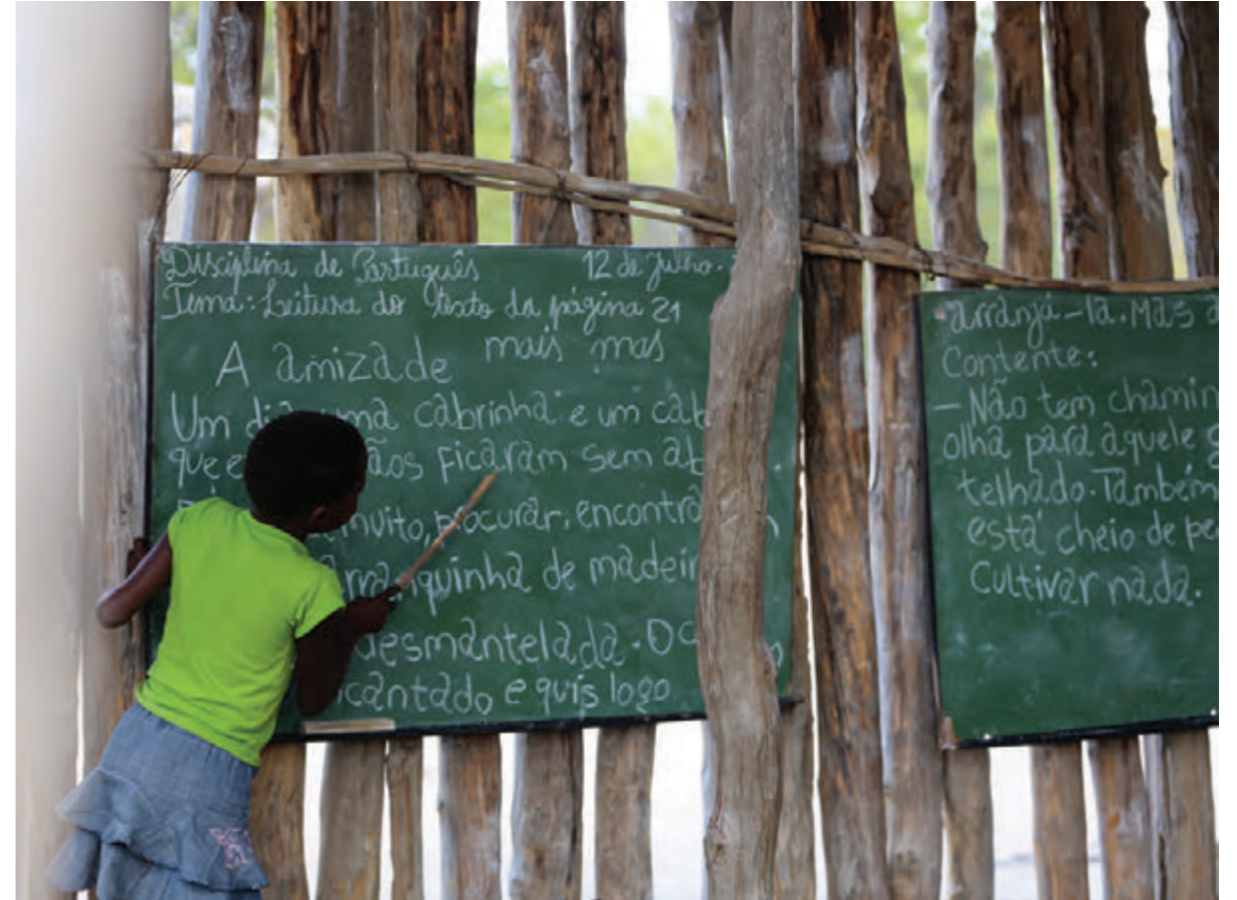 Disciplina de Português 12 de Julho.
Tema: Leitura do texto da página 21
mais mas
A amizade
Um uma cabrinha e um
que ficaram sem
muito, procurar, encontra
de madeir
desmantelada. O
e quis logo
arranjá-la. Mas
Contente:
- Não tem chamin
olha para aquele
telhado. Também
está cheio de
Cultivar nada.